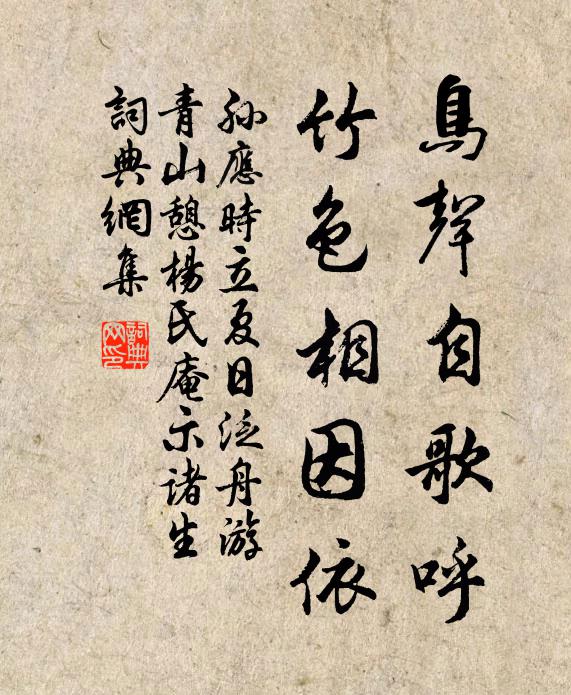 鳥聲自歌呼
竹色相因依
孫應時立夏日泛舟游
青山憩楊氏庵示諸生
詞典網集
詞典
网印